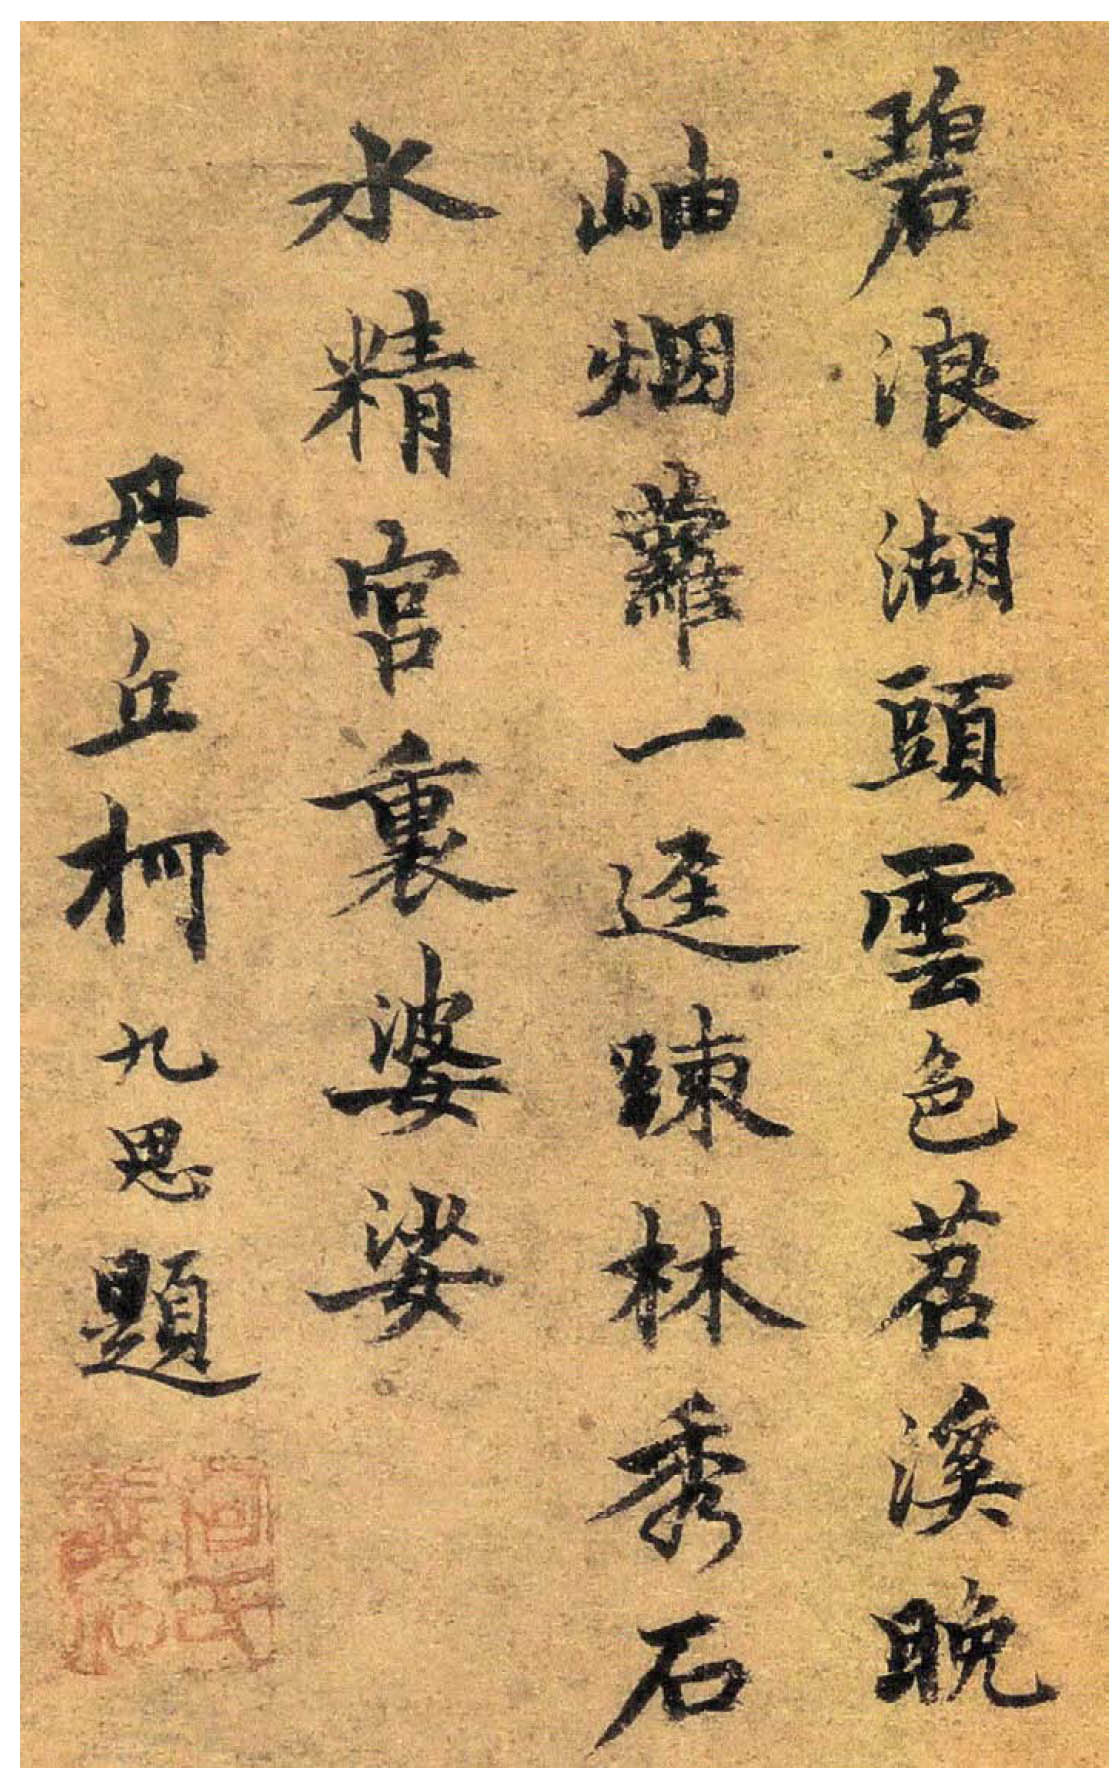 碧浪湖頭雲色苕溪晚
岫烟蘿一逕踈林秀石
水精宮裏婆娑
丹丘柯九思題
柯氏敬仲